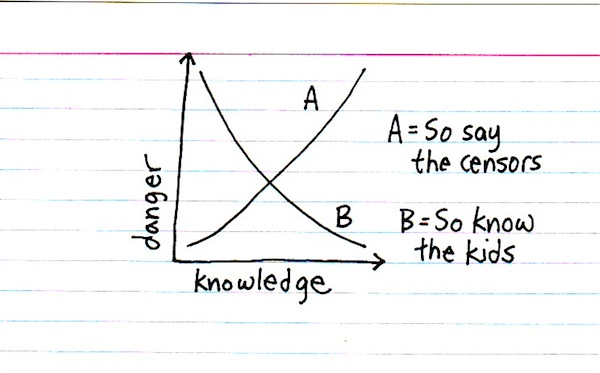 A
B
danger
knowledge
A = So say
the censors
B = So know
the kids